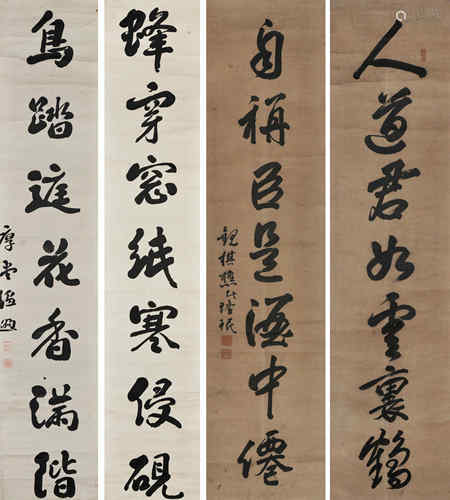 人道君如雲裏鶴
自稱臣是酒中僊
蜂穿窓紙寒侵硯
鳥踏庭花香滿階